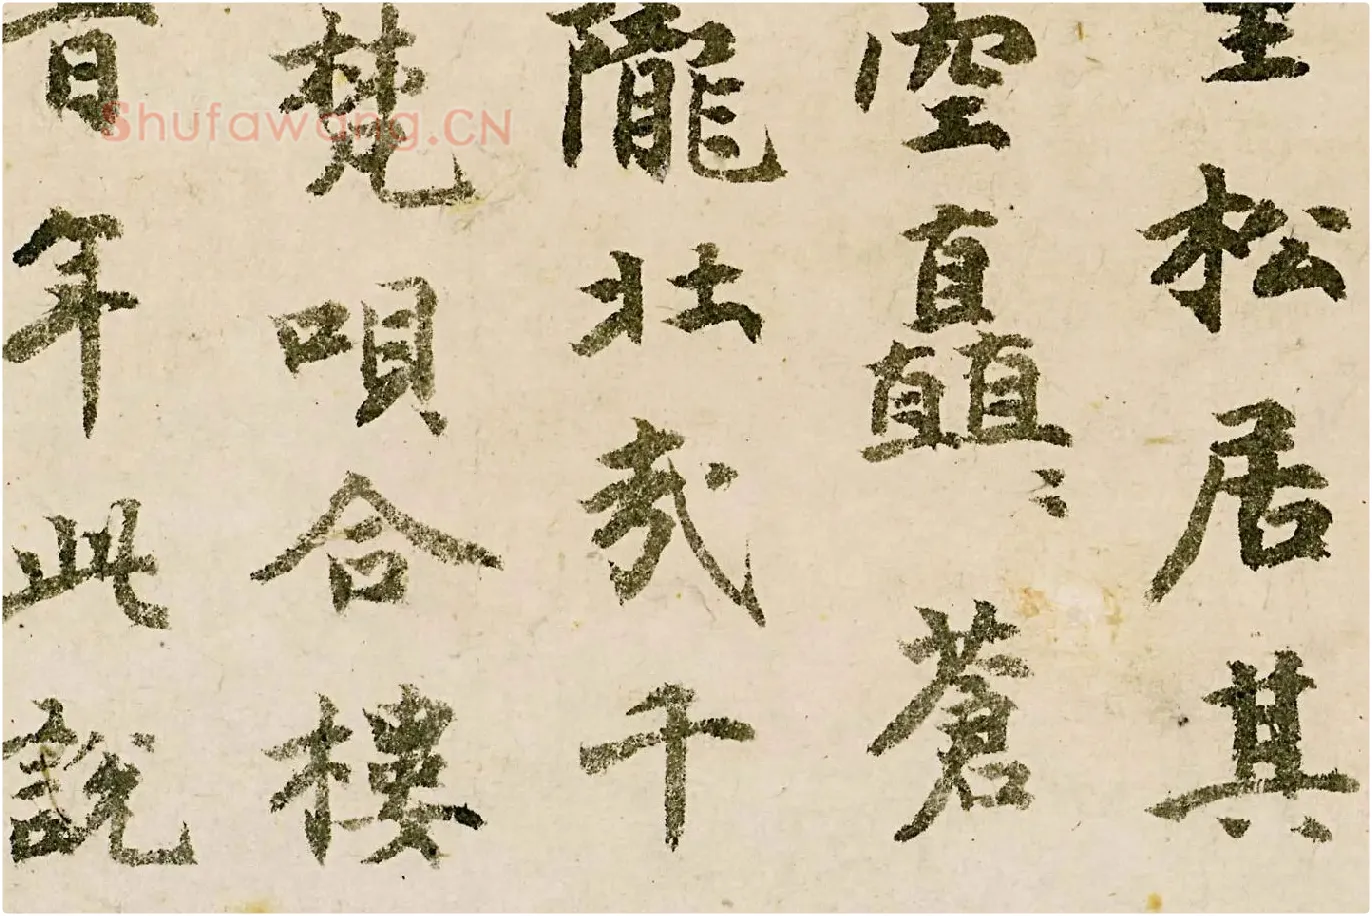 松居其
空矗〻蒼
隴壯哉千
梵唄合樓
百年此說
Shufawang.CN